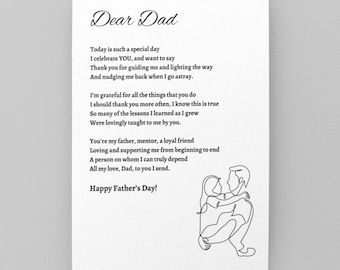 Dear Dad
Today is such a special day
I celebrate YOU, and want to say
Thank you for guiding me and lighting the way
And nudging me back when I go astray.
I'm grateful for all the things that you do
I should thank you more often, I know this is true
So many of the lessons I learned as I grew
Were lovingly taught to me by you.
You're my father, mentor, a loyal friend
Loving and supporting me from beginning to end
A person on whom I can truly depend
All my love, Dad, to you I send.
Happy Father's Day!